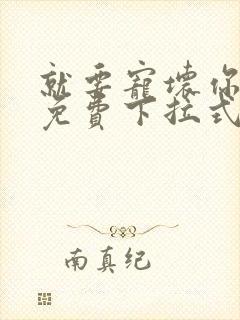 就要寵壞你
免費下拉式
南真纪